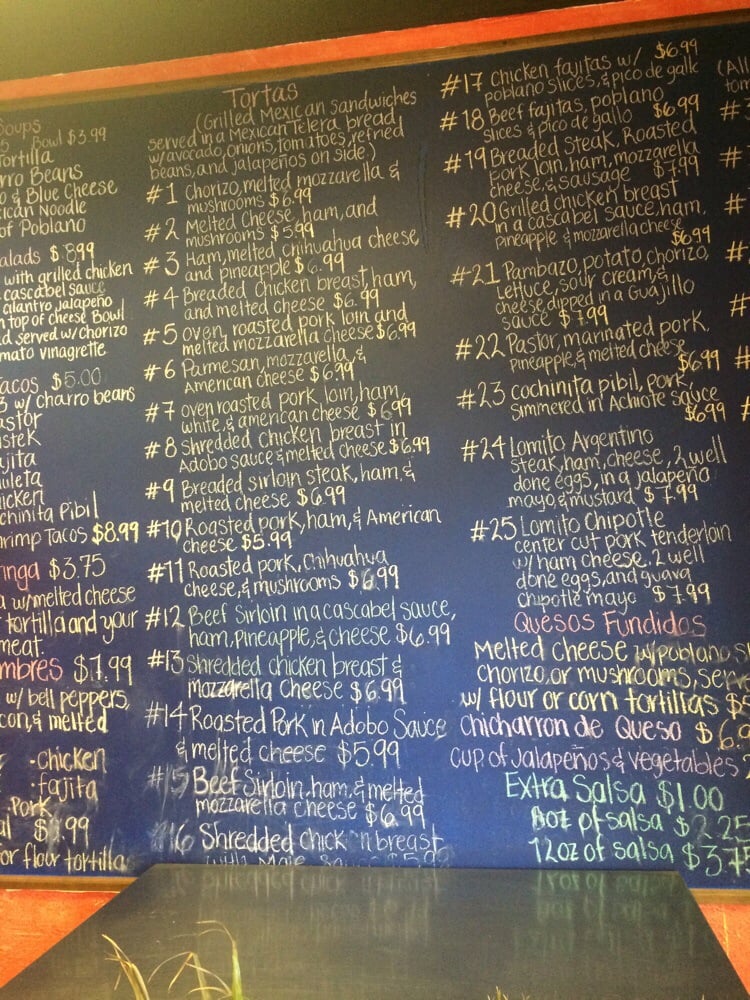 Soups
Bowl $3.99
Tortilla
rro Beans
o & Blue Cheese
ican Noodle
of Poblano
alads $8.99
with grilled chicken
cascabel sauce
cilantro, jalapeño
n top of cheese Bowl
d served w/chorizo
mato vinagrette
acos $5.00
3 w/ charro beans
astor
istek
ajita
uleta
hicken
chinita Pibil
hrimp Tacos $8.99
inga $3.75
a w/melted cheese
tortilla and your
meat.
mbres $7.99
w/ bell peppers,
con, & melted
-chicken
-fajita
-Pork
al $ .99
or flour tortilla
Tortas
(Grilled Mexican sandwiches
served in a Mexican Telera bread
w/avocado, onions, tomatoes, refried
beans, and jalapeños on side)
#1 Chorizo, melted mozzarella &
mushrooms $6.99
#2 Melted Cheese, ham, and
mushrooms $5.99
#3 Ham, melted chihuahua cheese,
and pineapple $6.99
#4 Breaded chicken breast, ham,
and melted cheese $6.99
#5 oven, roasted pork loin and
melted mozzarella cheese $6.99
#6 Parmesan, mozzarella, &
American cheese $6.99
#7 oven roasted pork loin, ham,
white, & american cheese $6.99
#8 shredded chicken breast in
Adobo sauce & melted cheese $6.99
#9 Breaded sirloin steak, ham, &
melted cheese $6.99
#10 Roasted pork, ham, & American
cheese $5.99
#11 Roasted pork, Chihuahua
cheese, & mushrooms $6.99
#12 Beef Sirloin in a cascabel sauce,
ham, pineapple, & cheese $6.99
#13 shredded chicken breast &
mozzarella Cheese $6.99
#14 Roasted Pork in Adobo Sauce
& melted cheese $5.99
#15 Beef Sirloin, ham, & melted
mozzarella cheese $6.99
#16 Shredded chick n breast
with Mole Sauce $5.99
#17 chicken fajitas w/ $6.99
poblano slices, & pico de gallo
#18 Beef fajitas, poblano
slices & pico de gallo $6.99
#19 Breaded steak, Roasted
pork loin, ham, mozzarella
cheese, & sausage $7.99
#20 Grilled chicken breast
in a cascabel sauce, ham,
pineapple & mozzarella cheese
$6.99
#21 Pambazo, potato, chorizo,
lettuce, sour cream, &
cheese dipped in a Guajillo
sauce $7.99
#22 Pastor, marinated pork,
Pineapple, & melted cheese
$6.99
#23 cochinita pibil, pork,
simmered in Achiote sauce
$6.99
#24 Lomito Argentino
steak, ham, cheese, 2 well
done eggs, in a jalapeño
mayo & mustard $7.99
#25 Lomito Chipotle
center cut pork tenderloin
w/ ham cheese, 2 well
done eggs, and guava
chipotle mayo $7.99
Quesos Fundidos
Melted cheese w/poblano sl
chorizo, or mushrooms, ser
w/ flour or corn tortillas $5
chicharron de Queso $6.9
cup of Jalapeños & vegetables
Extra Salsa $1.00
8oz of salsa $2.25
12oz of salsa $3.75
(All
tor
#
#
#
#
#
#
#
#